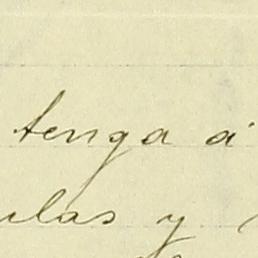 tenga á
ulas y